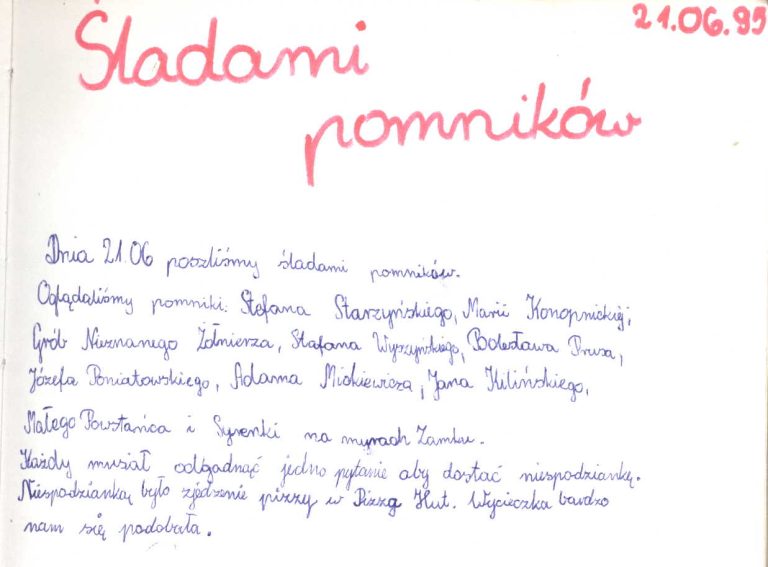 21.06.95
Śladami
pomników
Dnia 21.06 poszliśmy śladami pomników.
Oglądaliśmy pomniki: Stefana Starzyńskiego, Marii Konopnickiej,
Grób Nieznanego Żołnierza, Stefana Wyszyńskiego, Bolesława Prusa,
Józefa Poniatowskiego, Adama Mickiewicza, Jana Kilińskiego,
Małego Powstańca i Syrenki na murach Zamku.
Każdy musiał odgadnąć jedno pytanie aby dostać niespodziankę.
Niespodzianką było zjedzenie pizzy w Pizza Hut. Wycieczka bardzo
nam się podobała.